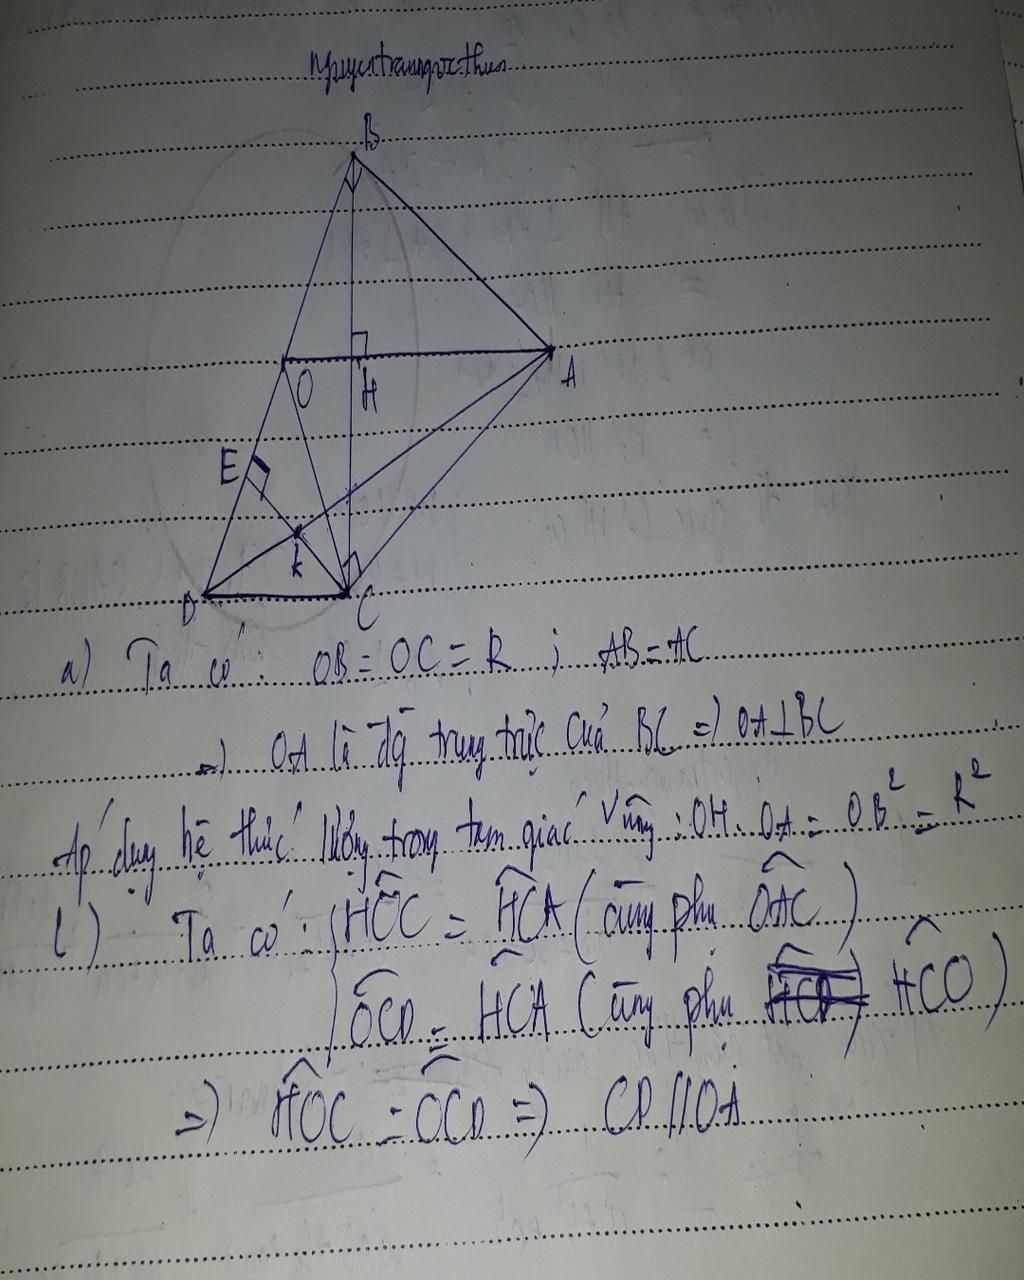 Nguyentranngocthuan
B
O
H
A
E
k
D
C
a) Ta có: OB = OC = R ; AB = AC
=) OA là đg trung trực của BC =) OA⊥BC
Áp dụng hệ thức lượng trong tam giác vuông: OH. OA = OB² = R²
b) Ta có: { HÔC = HĈA (cùng phụ OÂC)
OĈD = HĈA (cùng phụ HĈO)
=) HÔC = OĈD =) CD // OA